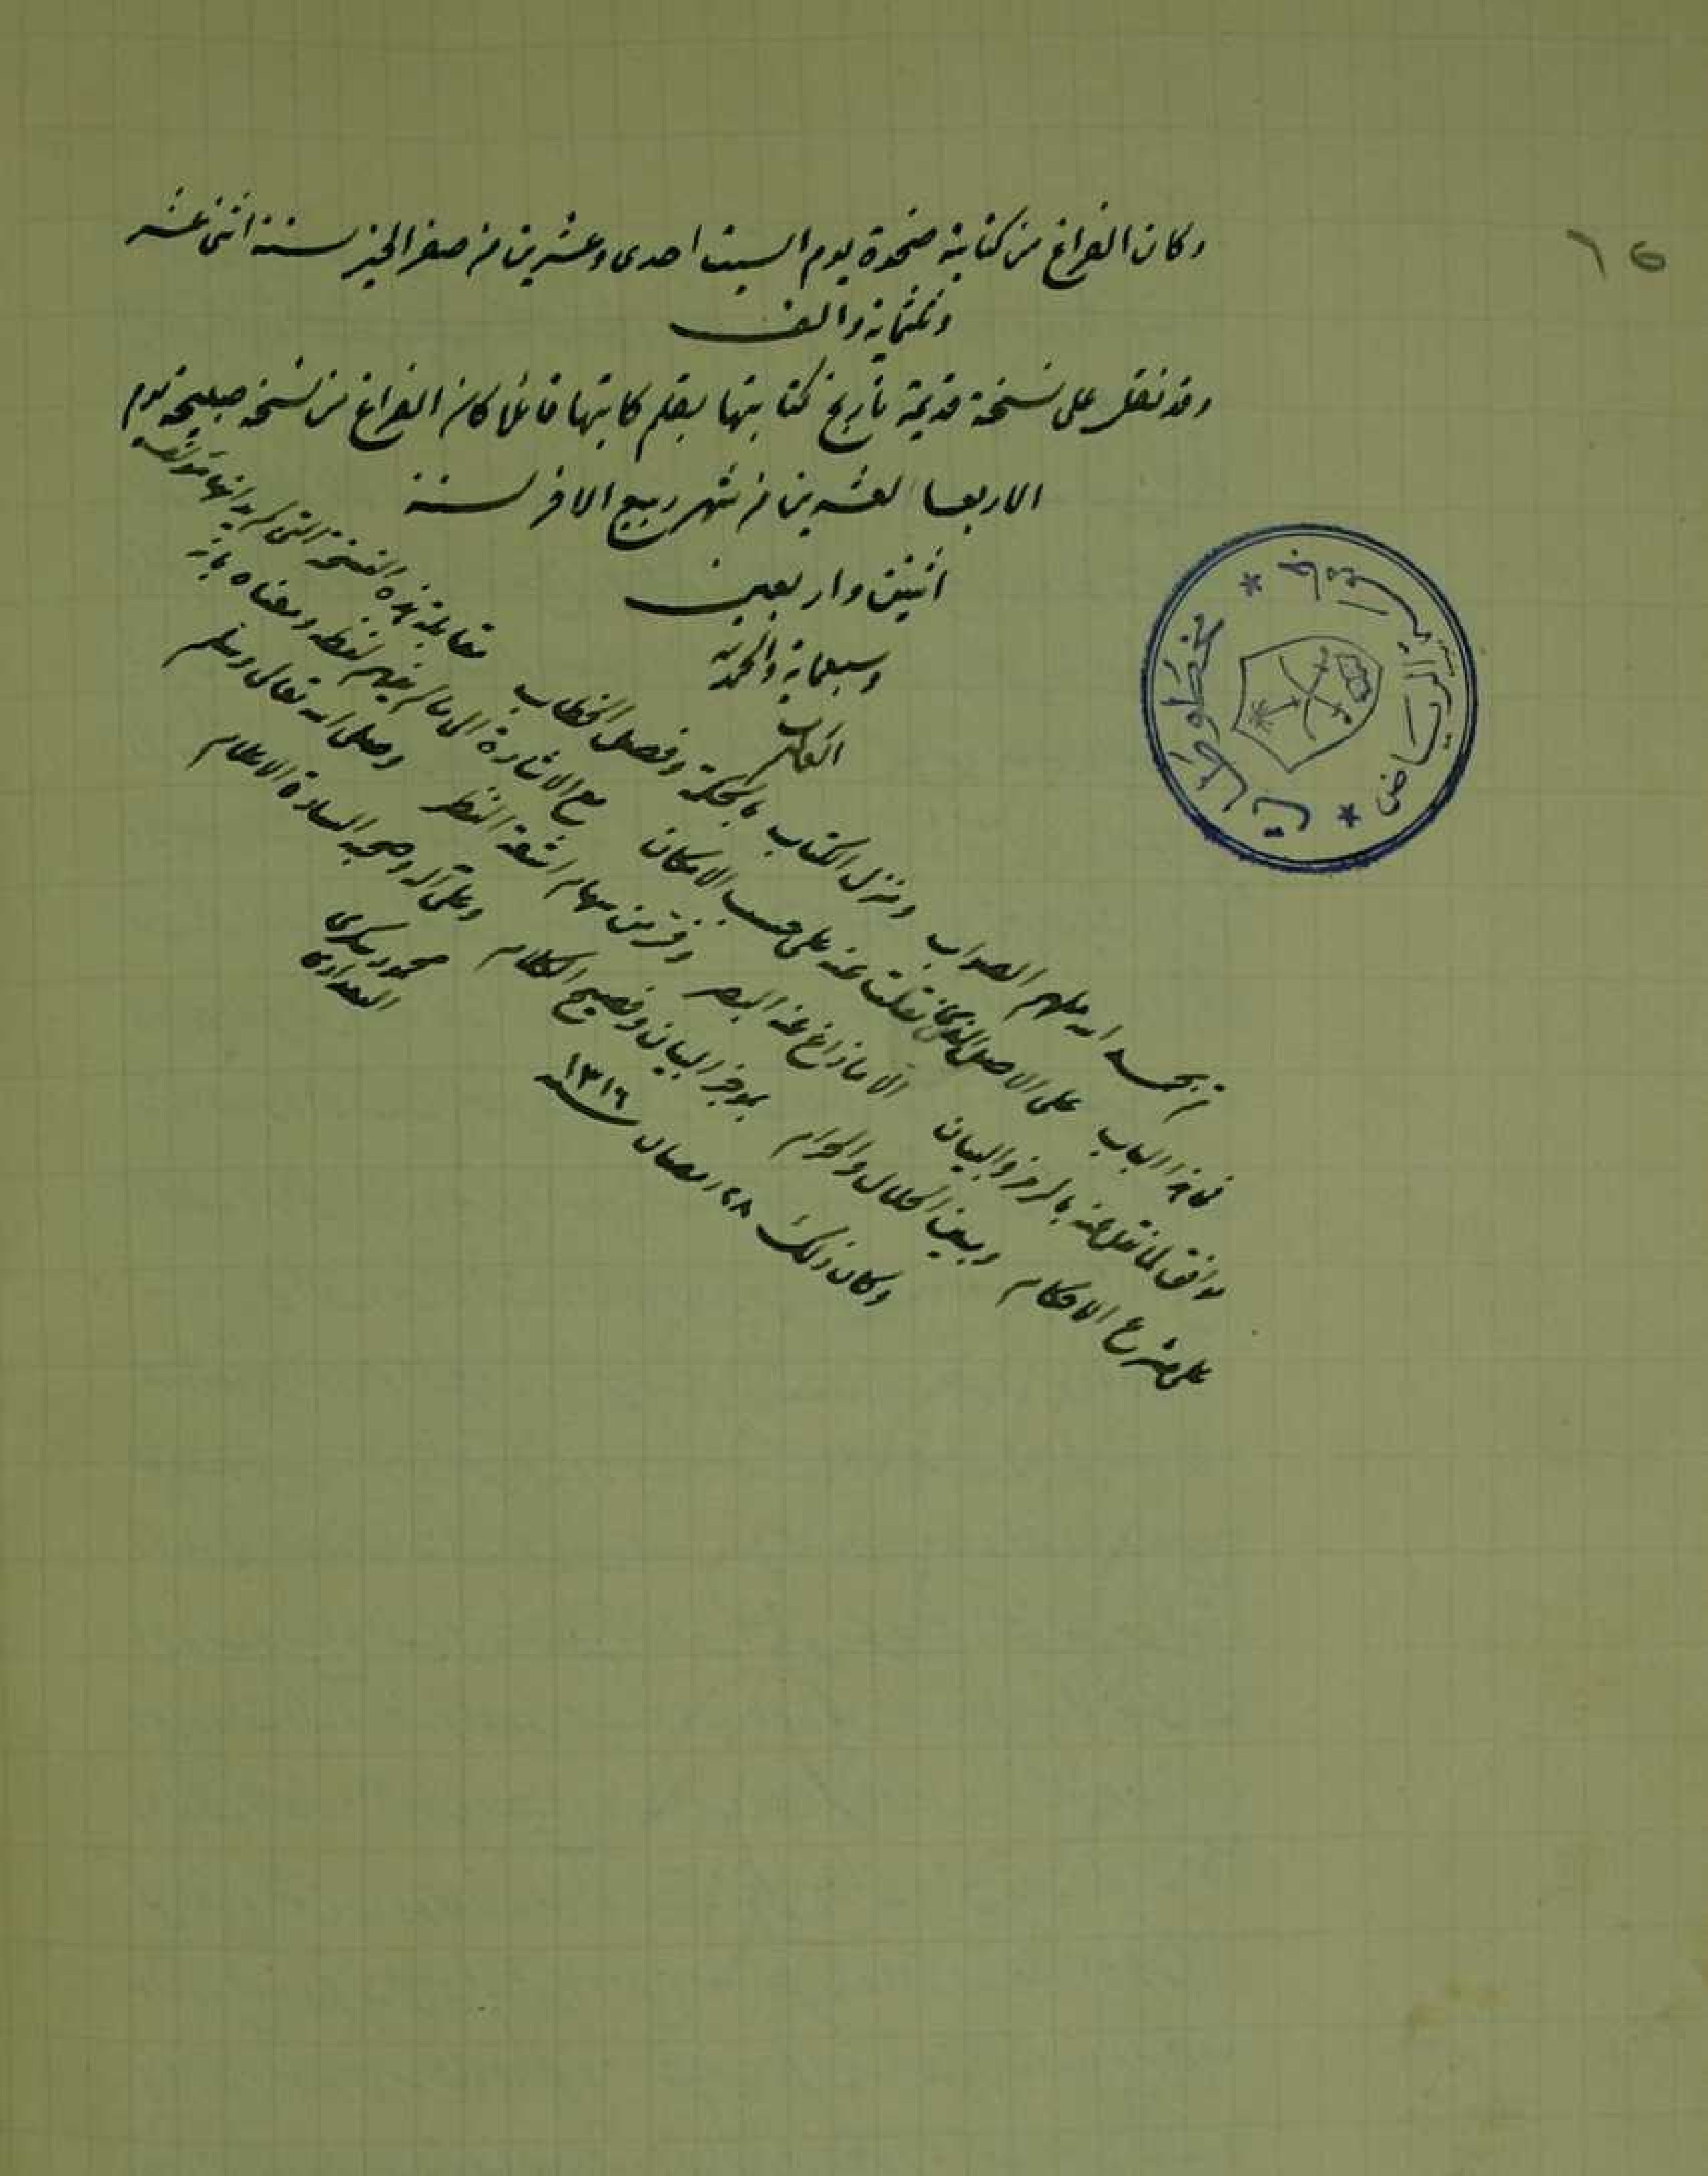 ٦٥
وكان الفراغ من كتابته ضحوة يوم السبت احدى وعشرين من صفر الخير سنة اثنى عشر
وثلثمائة والف
وقد نقل على نسخة قديمة تاريخ كتابتها بقلم كاتبها قائلا كان الفراغ من نسخه صبيحة يوم
الاربعا العشرين من شهر ربيع الاخر سنة
اثنين واربعين
وسبعمائة والحمد لله
تم بحمد الله ملهم الصواب ومنزل الكتاب بالحكمة وفصل الخطاب مقابلة هذه النسخة التى لم يؤلف
فى هذا الباب على الاصل الذى نقلت عنه على حسب الامكان مع الاشارة الى ما لم يفهم لفظه ومعناه بانه
موافق لما نقل عنه بالرمز والبيان الا ما زاغ عنه البصر وفر من سهام اشعة النظر وصلى الله تعالى وسلم
على مشرع الاحكام ومبين الحلال والحرام بموجز البيان وفصيح الكلام وعلى آله وصحبه السادة الاعلام
وكان ذلك ٢٨ رمضان سنة ١٣١٦
محمود شكرى
البغدادى
مخطوطات
الرياض
السعودية